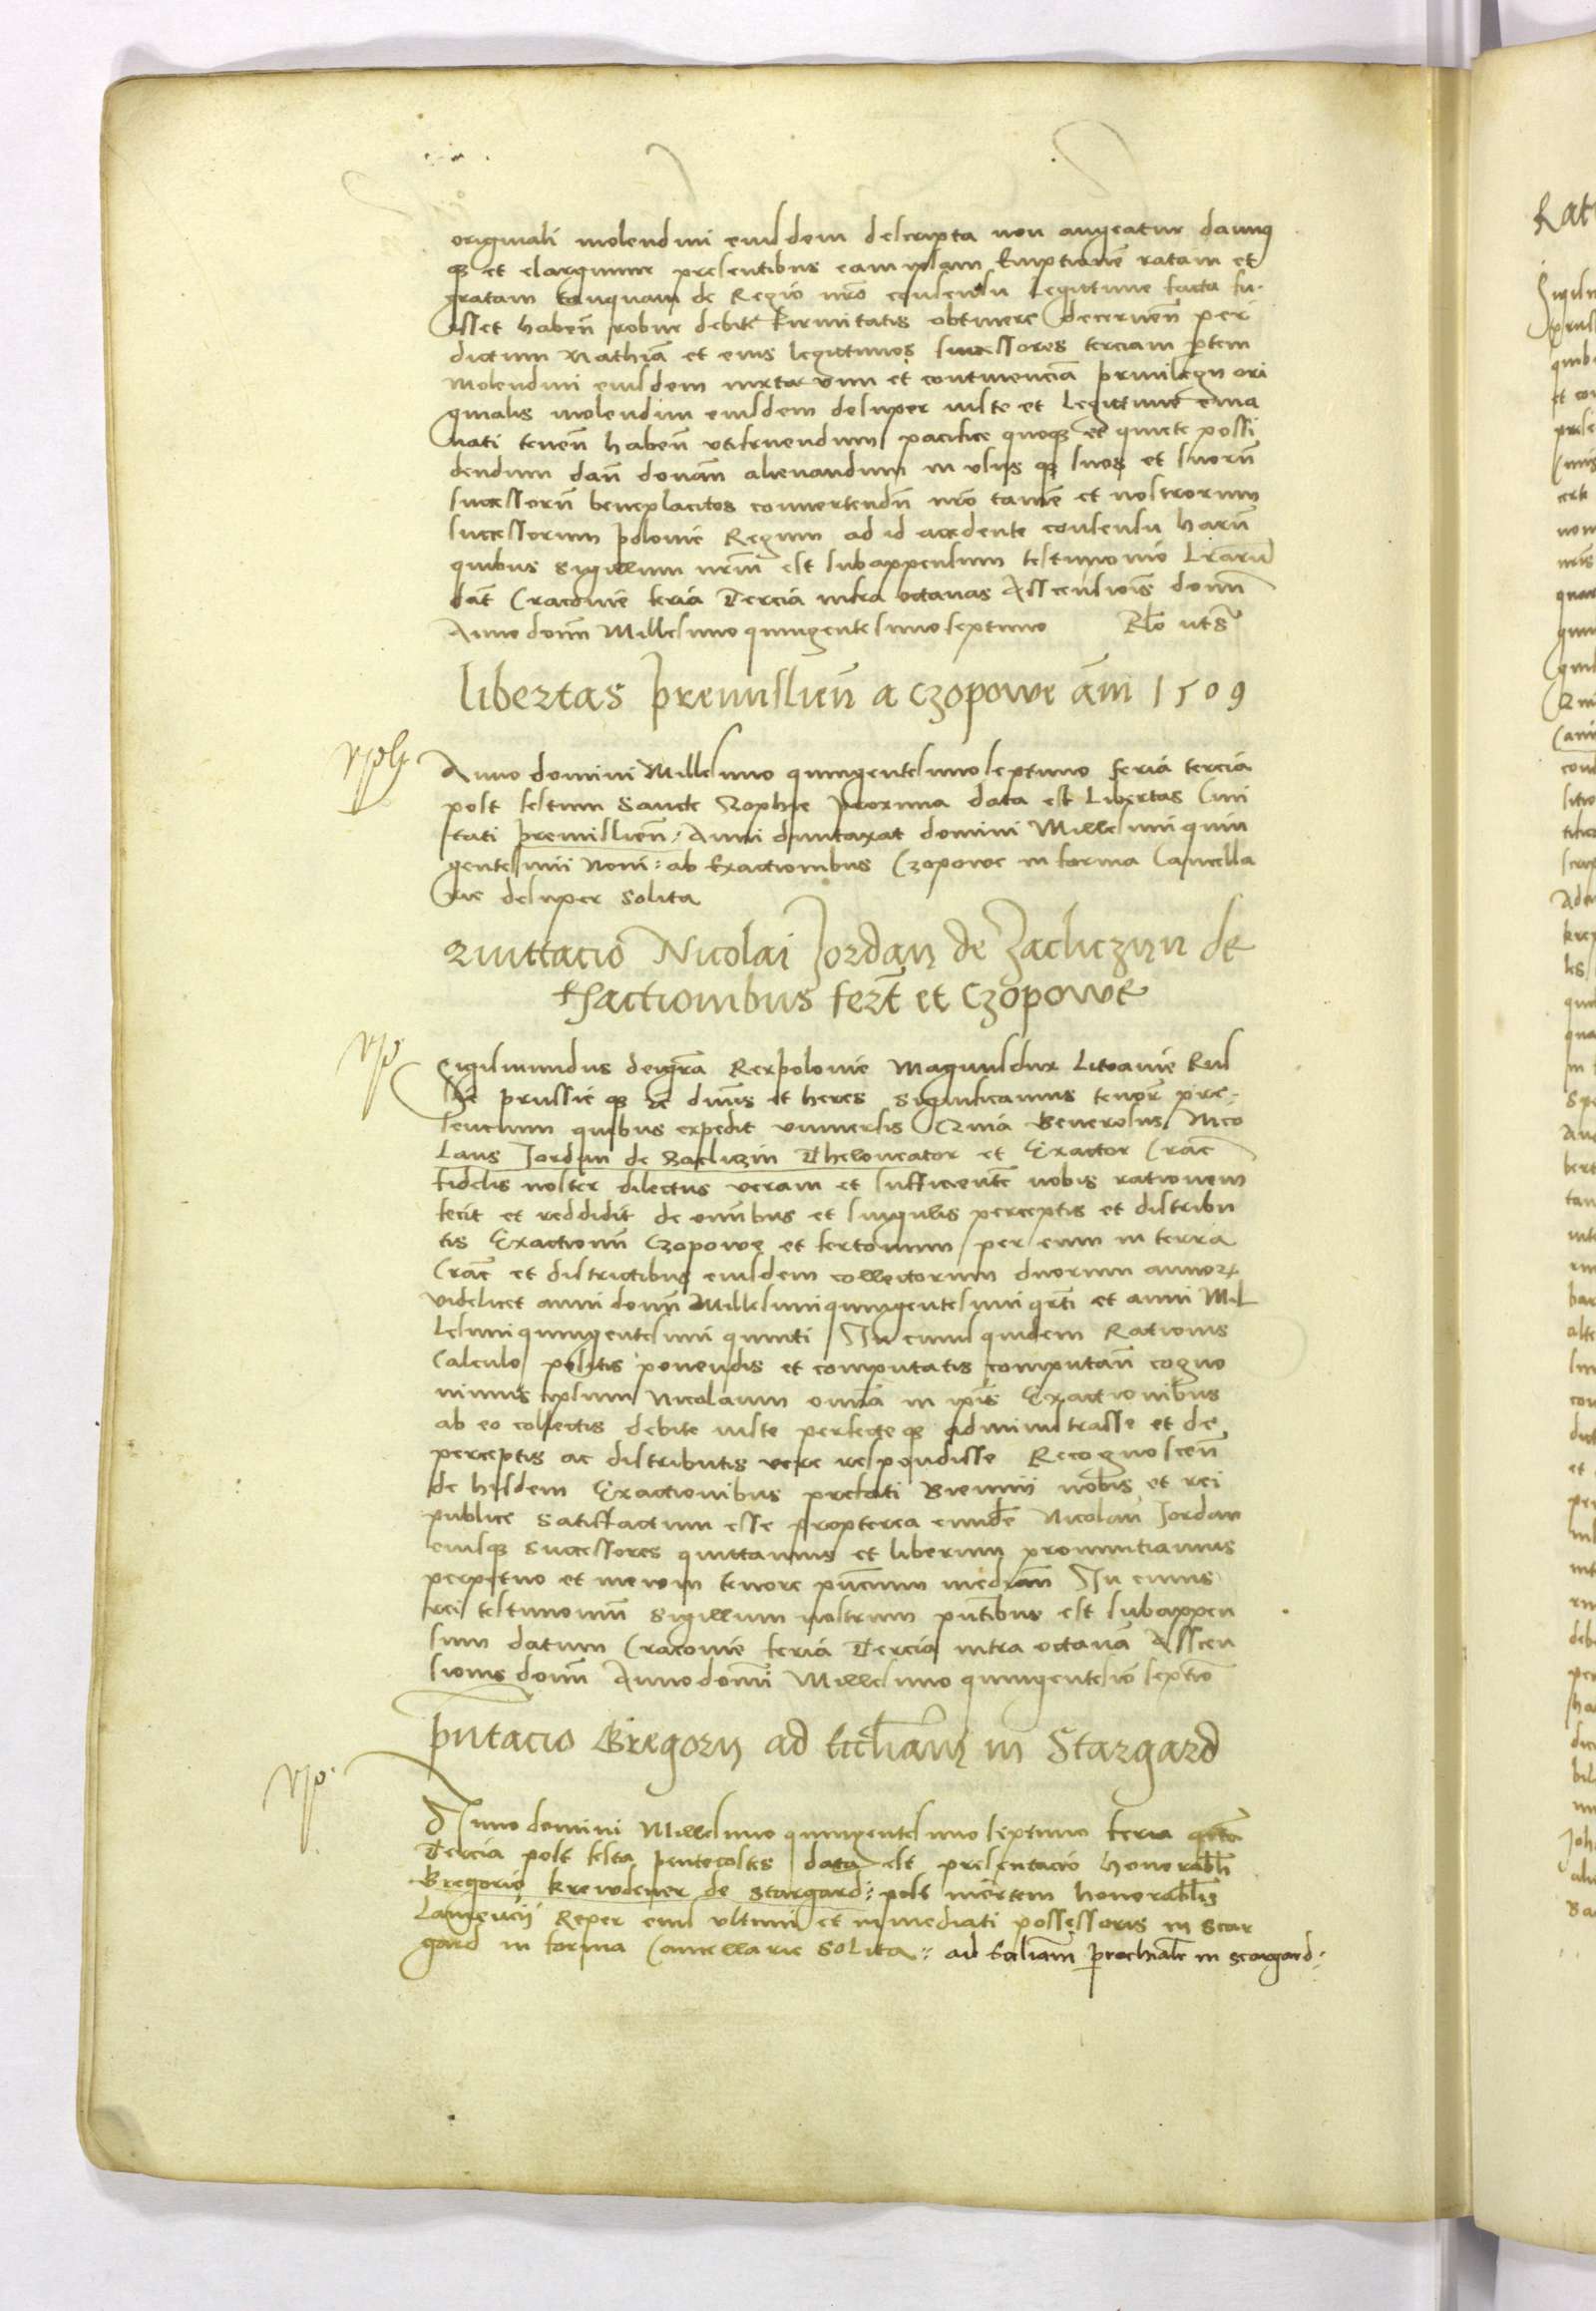 originali molendini eiusdem descripta non augeatur damus
q3 et elargimur presentibus eam ipsam Emptionē ratam et
gratam tanquam de Regio nrō consensu Legittime facta fu-
isset habeñ robur debite firmitatis obtinere decerneñ per
dictum Mathiā et eius legittimos successores terciam ptem
Molendini eiusdem iuxta vim et continenciā privilegii ori
ginalis molendini eiusdem desuper iuste et Legittime ema
nati teneñ habeñ utifruendum pacifice quoq3 et quiete possi
dendum dañ donañ alienandum in usus q3 suos et suorū
successorū beneplacitos convertendū nrō tamē et nostrorum
successorum polonie Regum ad id accedente consensu harū
quibus sigillum nrm̄ est subappensum testimonio Lrarū
dat̄ Cracovie feria Tercia infra octavas Ascensionis domī
Anno domī Millesimo quingentesimoseptimo Rlō ut s
libertas premislień a czopowe am 1509
Anno domini Millesimo quingentesimoseptimo feria tercia
post festum Sancte Zophie proxima data est Libertas Civi
tati premislień: Anni duntaxat domini Millesimi quin
gentesimi Noni: ab Exactionibus Czopowe in forma Cancella
rie desuper solita
Quittacio Nicolai Jordan de Zacliczyn de
Exactionibus fert̄ et Czopowe
Sigismundus deigrā Rexpolonie Magnusdux Litvanie Rus
sie prussie q3 zc dnus et heres Significamus tenore pre-
sencium quibus expedit universis Quia Generosus Nico
laus Jordan de Zacliczin Theloneator et Exactor Crac̄
fidelis noster dilectus veram et sufficientē nobis rationem
fecit et reddidit de omībus et singulis perceptis et distribu
tis Exactionū Czopowe et fertonum per eum in terra
Crac̄ et districtibus eiusdem collectorum duorum annor
videlicet anni domī Millesimiquingentesimi qrti et anni Mil
lesimiquingentesimi quinti In cuius quidem Rationis
Calculo positis ponendis et computatis computañ cogno
vimus ipsum Nicolaum omnia in ipis Exactionibus
ab eo collectis debite iuste perfecte q3 administrasse et de
perceptis ac distributis vere respondisse Recognosceñ
de hisdem Exactionibus prefati Biennii nobis et rei
publice satisfactum esse propterea eundē Nicolaū Jordan
eiusq3 Successores quittamus et liberum pronuntiamus
perpetuo et inevum tenore pñcium mediañ In cuius
rei testimoniū Sigillum nostrum pñtibus est subappen
sum datum Cracovie feria Tercia infra octavā Ascen
sionis domī Anno domī Millesimo quingentesiō septiō
pñtacio Gregorii ad Eccliam in Stargard
Anno domini Millesimo quingentesimo septimo feria
Tercia post festa pentecostes data est presentacio honorabli
Gregorio Krewdener de Stargard: post mortem honorablis
Laurencii Reper eius ultimi et immediati possessoris in Star
gard in forma Cancellarie solita: ad Eccliam prochialē in Stargard: